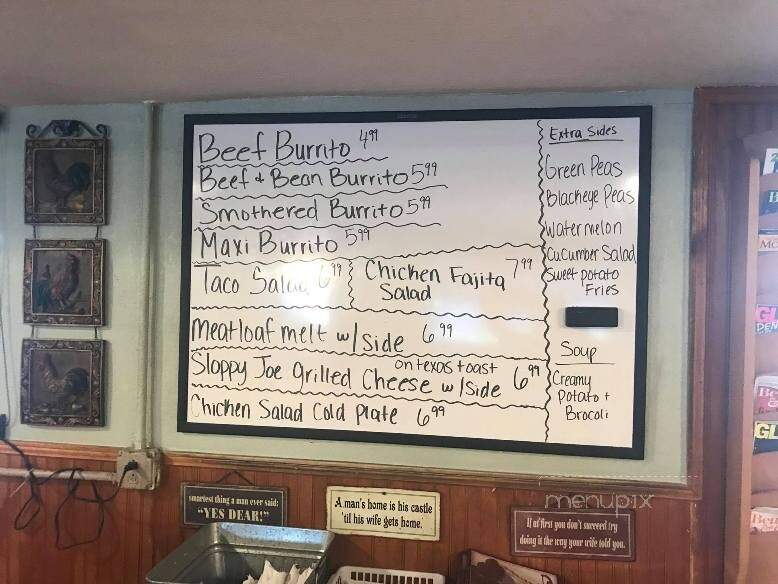 Beef Burrito 4.99
Beef + Bean Burrito 5.99
Smothered Burrito 5.99
Maxi Burrito 5.99
Taco Salad 6.99
Chicken Fajita 7.99
Salad
Meatloaf melt w/side 6.99
on texas toast
Sloppy Joe grilled Cheese w/Side 6.99
Chicken Salad Cold Plate 6.99
Extra Sides
Green Peas
Blackeye Peas
Watermelon
Cucumber Salad
Sweet potato
Fries
Soup
Creamy
Potato +
Brocoli
smartest thing a man ever said:
"YES DEAR!"
A man's home is his castle
'til his wife gets home.
If at first you don't succeed try
doing it the way your wife told you.
menupix